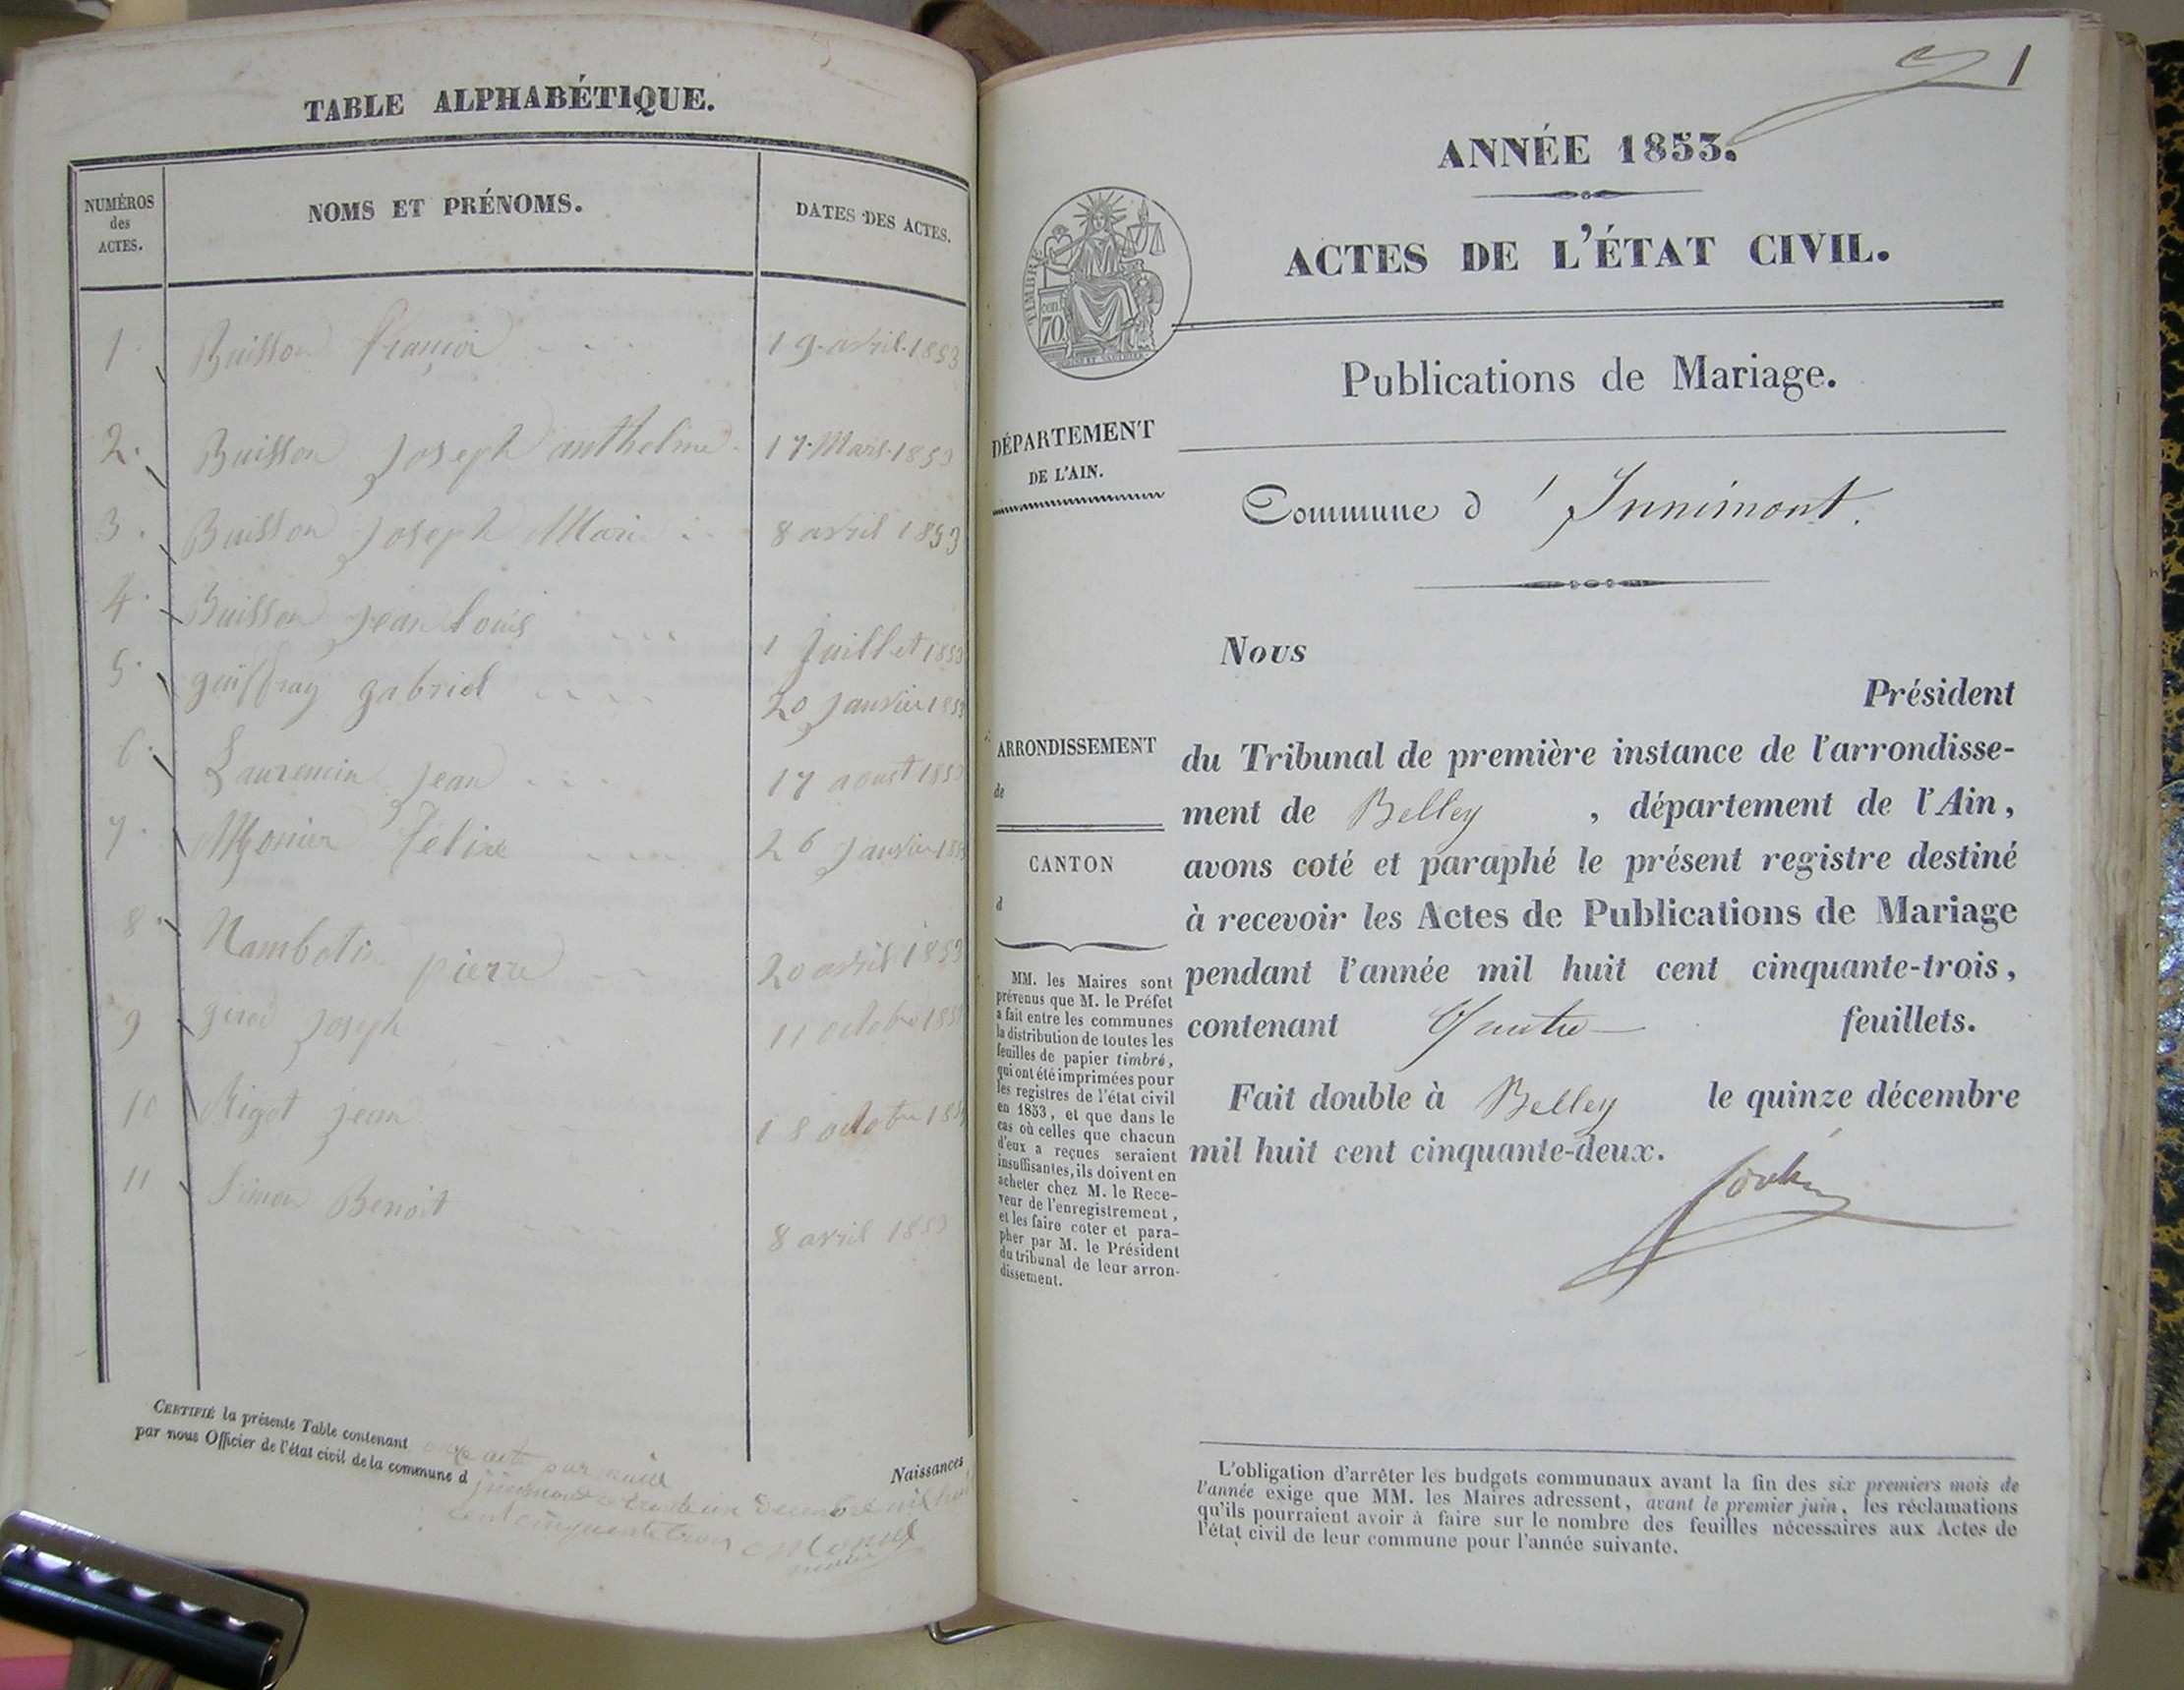 TABLE ALPHABÉTIQUE.
NUMÉROS
des
ACTES.
NOMS ET PRÉNOMS.
DATES DES ACTES.
1. Buisson françois 19 avril 1853
2. Buisson Joseph anthelme 17 Mars 1853
3. Buisson Joseph Marie 8 avril 1853
4. Buisson Jean Louis 1 Juillet 1853
5. guiffray gabriel 20 Janvier 1853
6. Laurencin Jean 17 aoust 1853
7. Monier félix 26 Janvier 1853
8. Nambotin pierre 20 avril 1853
9 girod Joseph 11 octobre 1853
10 Rigot jean 18 octobre 1853
11 Simon Benoit 8 avril 1853
CERTIFIÉ la présente Table contenant onze acte par nous Naissances
par nous Officier de l'état civil de la commune d
cent cinquante trois
1
ANNÉE 1853.
ACTES DE L'ÉTAT CIVIL.
TIMBRE
cen.
70
Publications de Mariage.
DÉPARTEMENT
DE L'AIN.
Commune d'Innimont.
Nous
Président
ARRONDISSEMENT
de
CANTON
d
du Tribunal de première instance de l'arrondisse-
ment de Belley , département de l'Ain,
avons coté et paraphé le présent registre destiné
à recevoir les Actes de Publications de Mariage
pendant l'année mil huit cent cinquante-trois,
contenant Quatre feuillets.
Fait double à Belley le quinze décembre
mil huit cent cinquante-deux.
MM. les Maires sont
prévenus que M. le Préfet
a fait entre les communes
la distribution de toutes les
feuilles de papier timbré,
qui ont été imprimées pour
les registres de l'état civil
en 1853, et que dans le
cas où celles que chacun
d'eux a reçues seraient
insuffisantes, ils doivent en
acheter chez M. le Rece-
veur de l'enregistrement,
et les faire coter et para-
pher par M. le Président
du tribunal de leur arron-
dissement.
L'obligation d'arrêter les budgets communaux avant la fin des six premiers mois de
l'année exige que MM. les Maires adressent, avant le premier juin, les réclamations
qu'ils pourraient avoir à faire sur le nombre des feuilles nécessaires aux Actes de
l'état civil de leur commune pour l'année suivante.